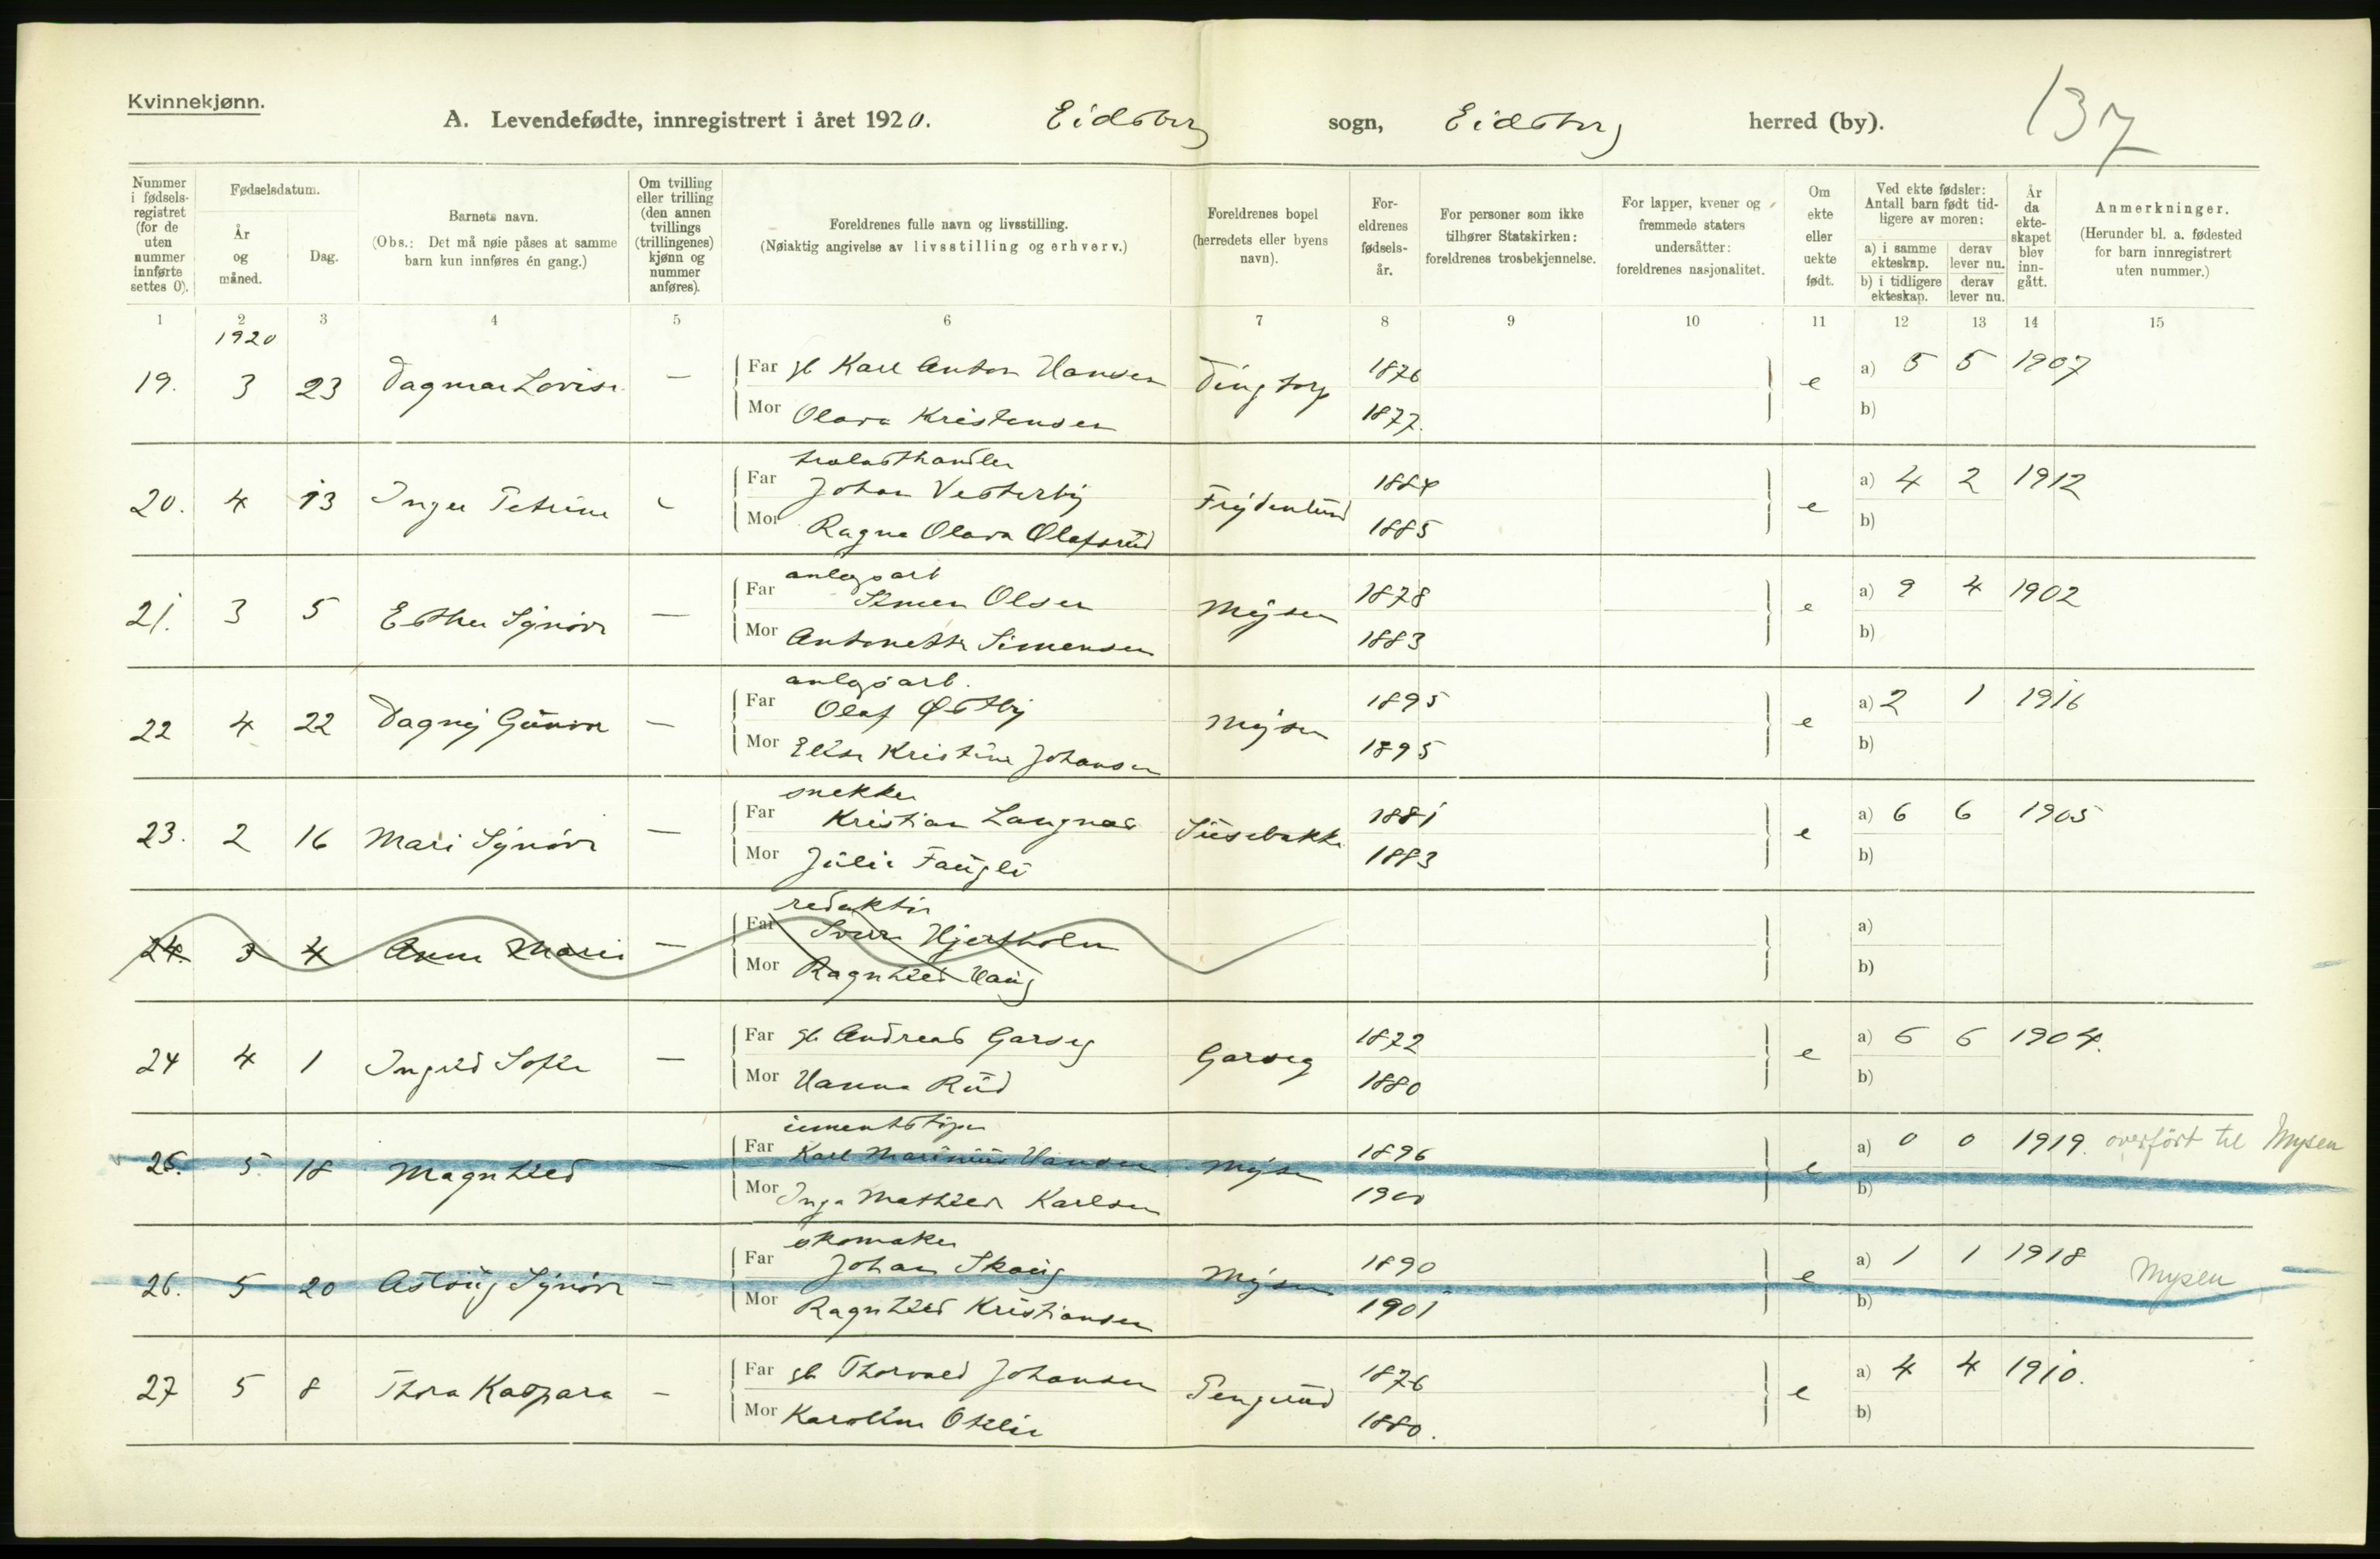 Kvinnekjønn.
A. Levendefødte, innregistrert i året 1920. Eidsberg sogn, Eidsberg herred (by). 137
Nummer i fødselsregistret (for de uten nummer innførte settes 0).
Fødselsdatum.
År og måned.
Dag.
Barnets navn.
(Obs.: Det må nøie påses at samme barn kun innføres én gang.)
Om tvilling eller trilling (den annen tvillings (trillingenes) kjønn og nummer anføres).
Foreldrenes fulle navn og livsstilling.
(Nøiaktig angivelse av livsstilling og erhverv.)
Foreldrenes bopel (herredets eller byens navn).
Foreldrenes fødselsår.
For personer som ikke tilhører Statskirken: foreldrenes trosbekjennelse.
For lapper, kvener og fremmede staters undersåtter: foreldrenes nasjonalitet.
Om ekte eller uekte født.
Ved ekte fødsler: Antall barn født tidligere av moren:
a) i samme ekteskap. derav lever nu.
b) i tidligere ekteskap. derav lever nu.
År da ekteskapet blev inngått.
Anmerkninger.
(Herunder bl. a. fødested for barn innregistrert uten nummer.)
1 2 3 4 5 6 7 8 9 10 11 12 13 14 15
1920
19. 3 23 Dagmar Lovise — Far gb Karl Anton Hansen Tingtorp 1876 e a) 5 5 1907
Mor Olava Kristensen 1877. b)
trælasthandler
20. 4 13 Inger Petrine - Far Johan Vesterby Frydenlund 1884 e a) 4 2 1912
Mor Ragna Olava Olafsrud 1885 b)
anlegsarb
21. 3 5 Esther Synøve — Far Simen Olsen Mysen 1878 e a) 9 4 1902
Mor Antonette Simensen 1883 b)
anlegsarb.
22 4 22 Dagny Gunvor — Far Olaf Østby Mysen 1895 e a) 2 1 1916
Mor Elise Kristine Johansen 1895 b)
snekker
23. 2 16 Mari Synøve — Far Kristian Langnæs Susebakke 1881 e a) 6 6 1905
Mor Julie Fangli 1883 b)
redaktør
24. 3 4 Anne Marie — Far Sverre Hjertholm a)
Mor Ragnhild Haug b)
24 4 1 Ingrid Sofie — Far gb Andreas Garseg Garseg 1872 e a) 6 6 1904.
Mor Hanna Rud 1880 b)
cementstøper
25. 5. 18 Magnhild — Far Karl Marinius Hansen Mysen 1896 e a) 0 0 1919. overført til Mysen
Mor Inga Mathilde Karlsen 1900 b)
skomaker
26. 5 20 Astrug Synøve — Far Johan Skaug Mysen 1890 e a) 1 1 1918 Mysen
Mor Ragnhild Kristiansen 1901 b)
27 5 8 Thora Kaspara — Far gb Thorvald Johansen Pengerud 1876 e a) 4 4 1910.
Mor Karoline Otilie 1880. b)